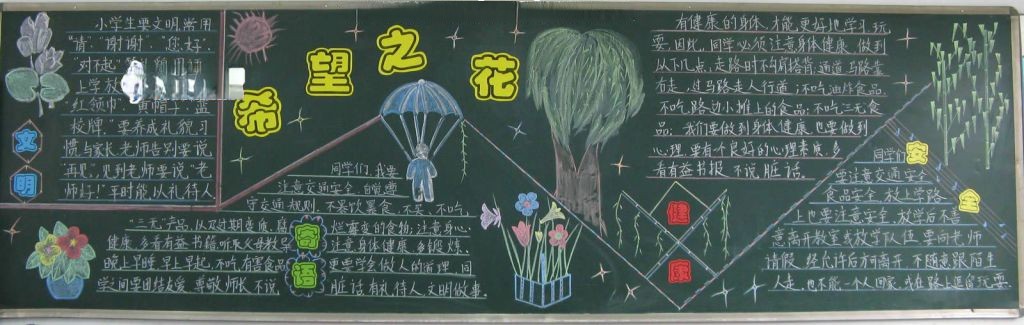 希望之花
文明
小学生要文明,常用
"请""谢谢""您好"
"对不起"
上学
红领巾、黄帽子、蓝
校牌,要养成礼貌习
惯与家长老师告别要说
再见,见到老师要说"老
师好!"平时能以礼待人
同学们,我要
注意交通安全,自觉遵
守交通规则,不暴饮暴食,不买、不吃
寄语
"三无"产品,以及过期变质、腐
烂霉变的食物,注意身心
健康,多看有益书籍,听取父母教导,
注意身体健康,多锻炼,
晚上早睡,早上早起,不吃有害食品,
更要学会做人的道理,同
学之间要团结友爱,尊敬师长,不说
脏话,有礼待人,文明做事。
健康
有健康的身体,才能更好地学习,玩
耍,因此,同学必须注意身体健康,做到
从小几点,走路时不弯腰驼背,通道马路靠
右走,过马路走人行道;不吃油炸食品,
不吃路边小摊上的食品;不吃三无食
品;我们要做到身体健康,也要做到
心理,要有个良好的心理素质,多
看有益书报,不说脏话。
安全
同学们
要注意交通安全,
食品安全,放上学路
上也要注意安全,放学后不要
意离开教室或放学队伍,要向老师
请假,经允许后方可离开,不随意跟陌生
人走,也不能一个人回家,或在路上逗留玩耍